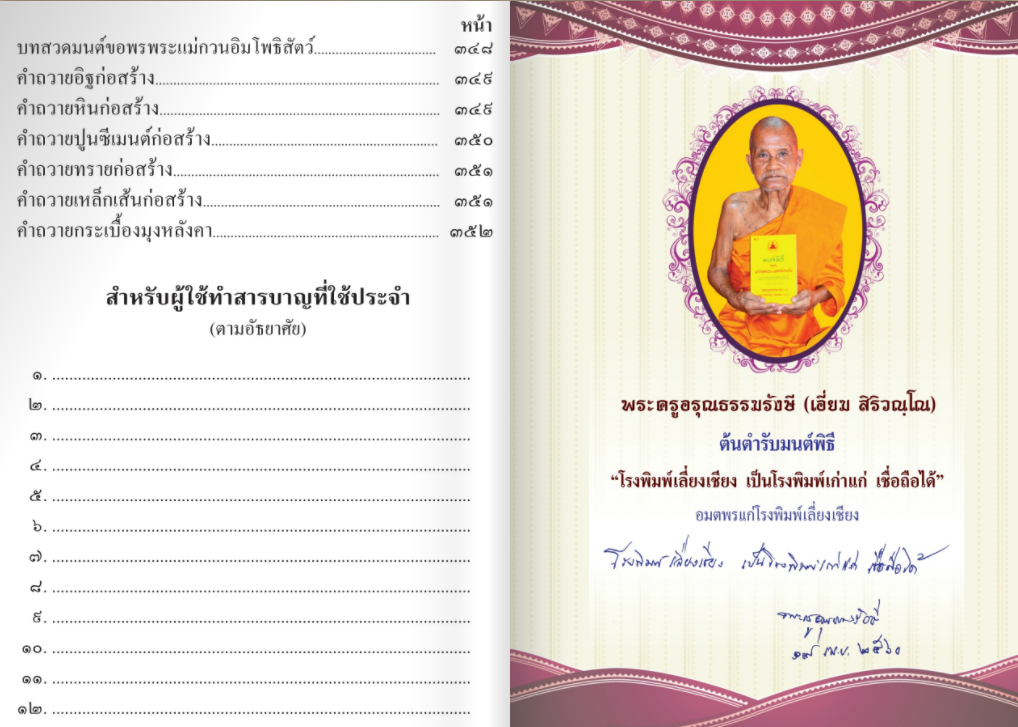 หน้า
บทสวดมนต์ขอพรพระแม่กวนอิมโพธิสัตว์.............................. ๓๔๘
คำถวายอิฐก่อสร้าง.............................. ๓๔๙
คำถวายหินก่อสร้าง.............................. ๓๔๙
คำถวายปูนซีเมนต์ก่อสร้าง.............................. ๓๕๐
คำถวายทรายก่อสร้าง.............................. ๓๕๑
คำถวายเหล็กเส้นก่อสร้าง.............................. ๓๕๑
คำถวายกระเบื้องมุงหลังคา.............................. ๓๕๒
สำหรับผู้ใช้ทำสารบาญที่ใช้ประจำ
(ตามอัธยาศัย)
๑. ..............................
๒. ..............................
๓. ..............................
๔. ..............................
๕. ..............................
๖. ..............................
๗. ..............................
๘. ..............................
๙. ..............................
๑๐. ..............................
๑๑. ..............................
๑๒. ..............................
พระครูอรุณธรรมรังษี (เอี่ยม สิริวณฺโณ)
ต้นตำรับมนต์พิธี
“โรงพิมพ์เลี่ยงเชียง เป็นโรงพิมพ์เก่าแก่ เชื่อถือได้”
อมตพรแก่โรงพิมพ์เลี่ยงเชียง
โรงพิมพ์เลี่ยงเชียง เป็นโรงพิมพ์เก่าแก่ เชื่อถือได้
พระครูอรุณธรรมรังษี
เม.ย. ๒๕๖๐